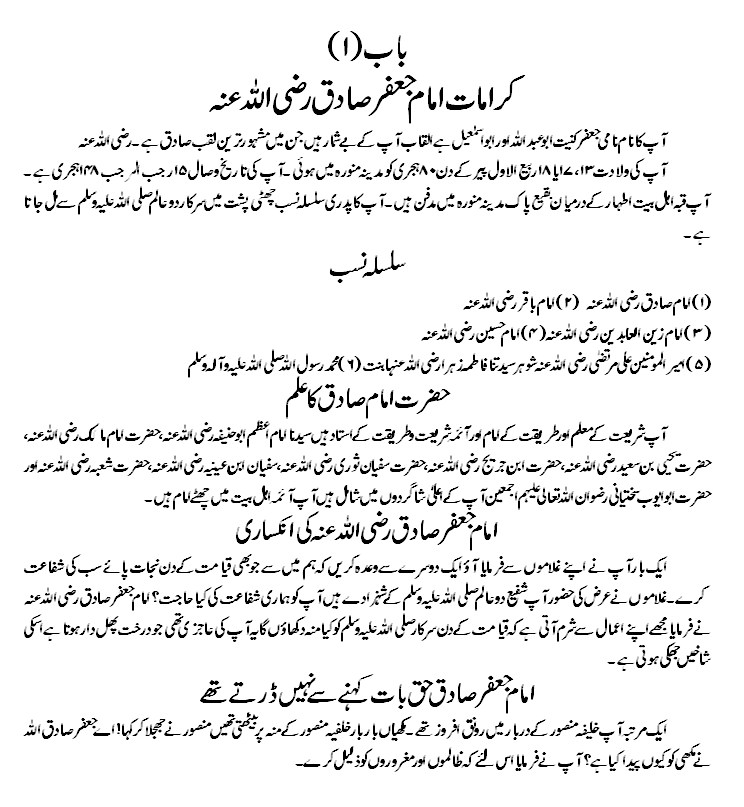 باب (۱)
کرامات امام جعفر صادق رضی اللہ عنہ
آپ کا نام نامی جعفر کنیت ابو عبد اللہ اور ابو اسمٰعیل ہے القاب آپ کے بے شمار ہیں جن میں مشہور ترین لقب صادق ہے۔ رضی اللہ عنہ
آپ کی ولادت ۱۳، ۱۷ یا ۱۸ ربیع الاول پیر کے دن ۸۰ ہجری کو مدینہ منورہ میں ہوئی۔ آپ کی تاریخ وصال ۱۵ رجب المرجب ۱۴۸ ہجری ہے۔
آپ قبہ اہل بیت اطہار کے درمیان بقیع پاک مدینہ منورہ میں مدفن ہیں۔ آپ کا پدری سلسلہ نسب چھٹی پشت میں سرکار دو عالم صلی اللہ علیہ وسلم سے مل جاتا
ہے۔
سلسلہ نسب
(۱) امام صادق رضی اللہ عنہ (۲) امام باقر رضی اللہ عنہ
(۳) امام زین العابدین رضی اللہ عنہ (۴) امام حسین رضی اللہ عنہ
(۵) امیر المومنین علی مرتضٰی رضی اللہ عنہ شوہر سیدتنا فاطمہ زہرا رضی اللہ عنہا بنت (۶) محمد رسول اللہ صلی اللہ علیہ وآلہ وسلم
حضرت امام صادق کا علم
آپ شریعت کے معلم اور طریقت کے امام اور آئمہ شریعت و طریقت کے استاد ہیں سیدنا امام اعظم ابو حنیفہ رضی اللہ عنہ، حضرت امام مالک رضی اللہ عنہ،
حضرت یحیٰی بن سعید رضی اللہ عنہ، حضرت ابن جریج رضی اللہ عنہ، حضرت سفیان ثوری رضی اللہ عنہ، سفیان ابن عینیہ رضی اللہ عنہ، حضرت شعبہ رضی اللہ عنہ اور
حضرت ابو ایوب بختیانی رضوان اللہ تعالٰی علیہم اجمعین آپ کے اعلٰی شاگردوں میں شامل ہیں آپ آئمہ اہل بیت میں چھٹے امام ہیں۔
امام جعفر صادق رضی اللہ عنہ کی انکساری
ایک بار آپ نے اپنے غلاموں سے فرمایا آؤ ایک دوسرے سے وعدہ کریں کہ ہم میں سے جو بھی قیامت کے دن نجات پائے سب کی شفاعت
کرے۔ غلاموں نے عرض کی حضور آپ شفیع دو عالم صلی اللہ علیہ وسلم کے شہزادے ہیں آپ کو ہماری شفاعت کی کیا حاجت؟ امام جعفر صادق رضی اللہ عنہ
نے فرمایا مجھے اپنے اعمال سے شرم آتی ہے کہ قیامت کے دن سرکار صلی اللہ علیہ وسلم کو کیا منہ دکھاؤں گا یہ آپ کی عاجزی تھی جو درخت پھل دار ہوتا ہے اسکی
شاخیں جھکی ہوتی ہے۔
امام جعفر صادق حق بات کہنے سے نہیں ڈرتے تھے
ایک مرتبہ آپ خلیفہ منصور کے دربار میں رونق افروز تھے۔ مکھیاں بار بار خلیفہ منصور کے منہ پر بیٹھتی تھیں منصور نے جھجلا کر کہا! اے جعفر صادق اللہ
نے مکھی کو کیوں پیدا کیا ہے؟ آپ نے فرمایا اس لئے کہ ظالموں اور مغروروں کو ذلیل کرے۔